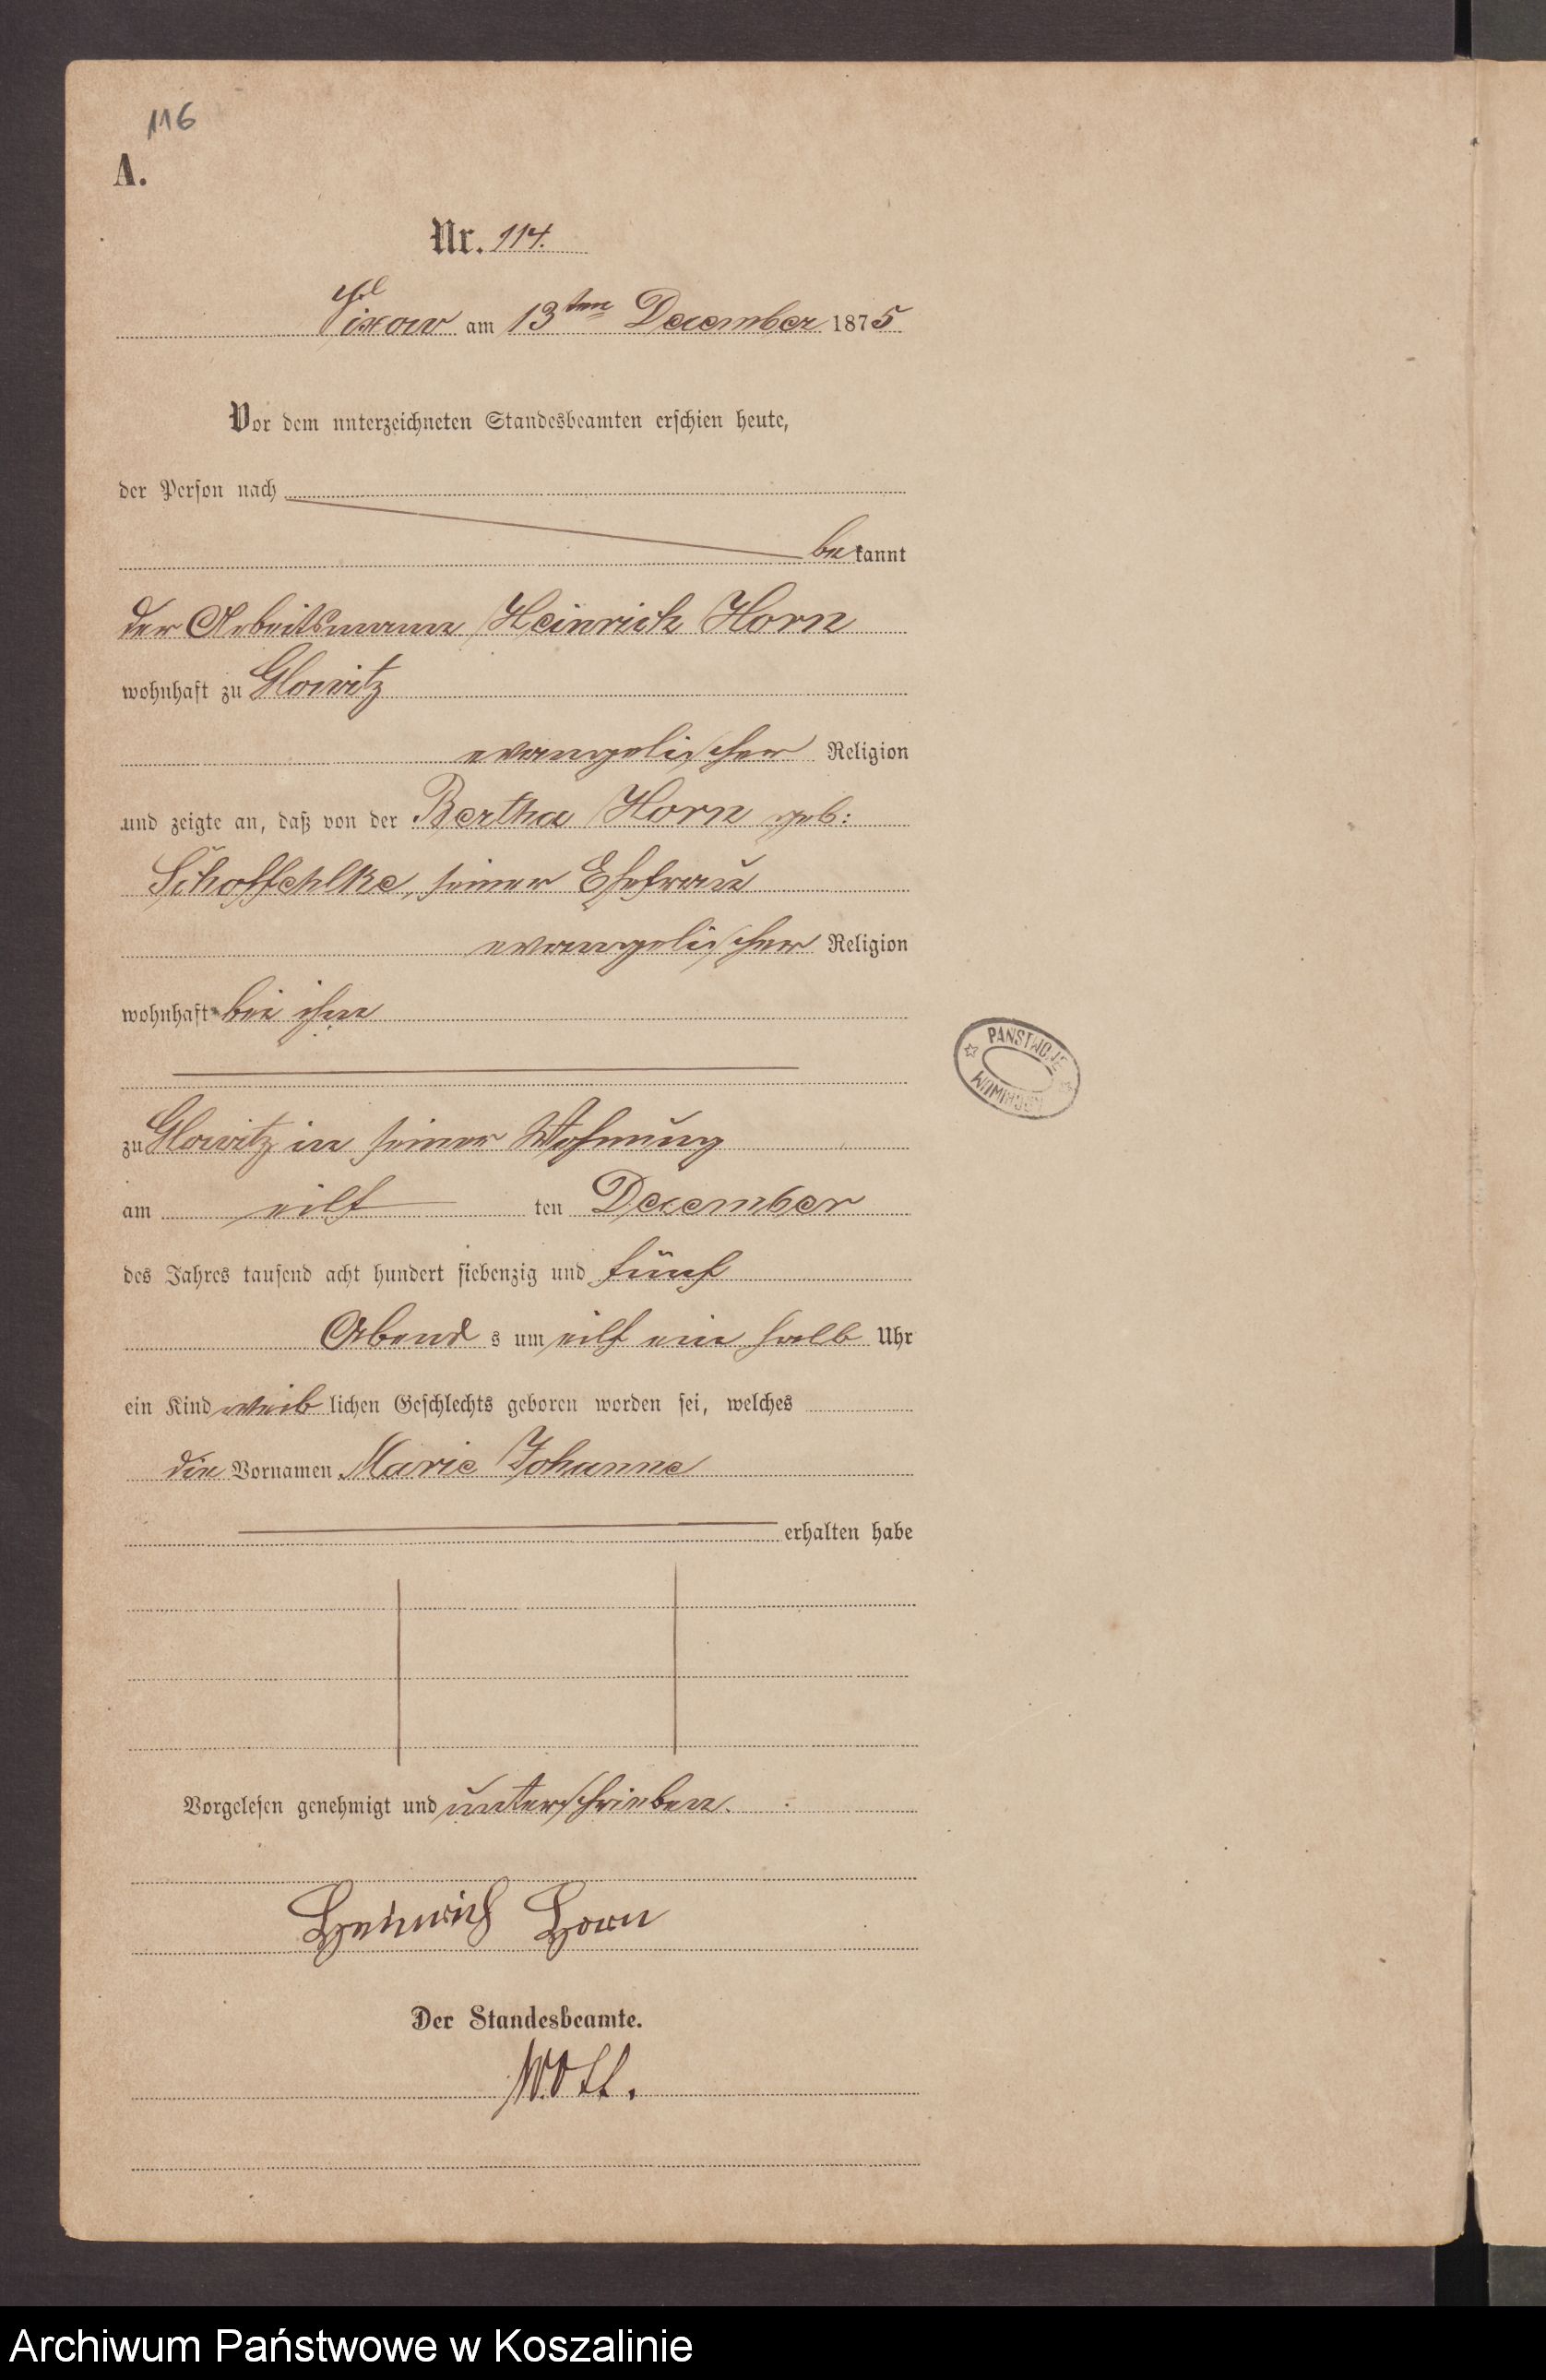 116
A.
Nr. 114.
Vixow am 13ten December 1875
Vor dem unterzeichneten Standesbeamten erschien heute,
der Person nach
bekannt
der Arbeitsmann Heinrich Horn
wohnhaft zu Glowitz
evangelischer Religion
und zeigte an, daß von der Bertha Horn geb:
seiner Ehefrau
evangelischer Religion
wohnhaft bei ihm
zu Glowitz in seiner Wohnung
am eilf ten December
des Jahres tausend acht hundert siebenzig und fünf
Abend s um eilf ein halb Uhr
ein Kind weib lichen Geschlechts geboren worden sei, welches
die Vornamen Marie Johanne
erhalten habe
Vorgelesen genehmigt und unterschrieben.
Heinrich Horn
Der Standesbeamte.
PAŃSTWOWE
ARCHIWUM
Archiwum Państwowe w Koszalinie